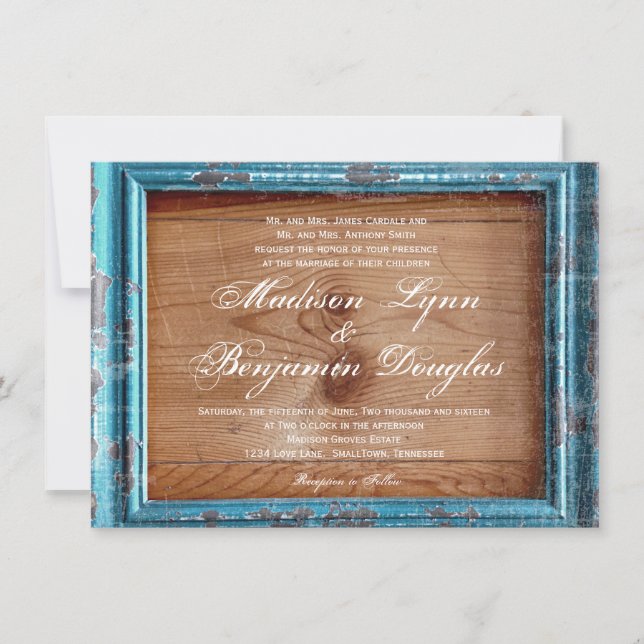 Mr. and Mrs. James Cardale and
Mr. and Mrs. Anthony Smith
request the honor of your presence
at the marriage of their children
Madison Lynn
&
Benjamin Douglas
Saturday, the fifteenth of June, Two thousand and sixteen
at Two o'clock in the afternoon
Madison Groves Estate
1234 Love Lane, SmallTown, Tennessee
Reception to Follow.